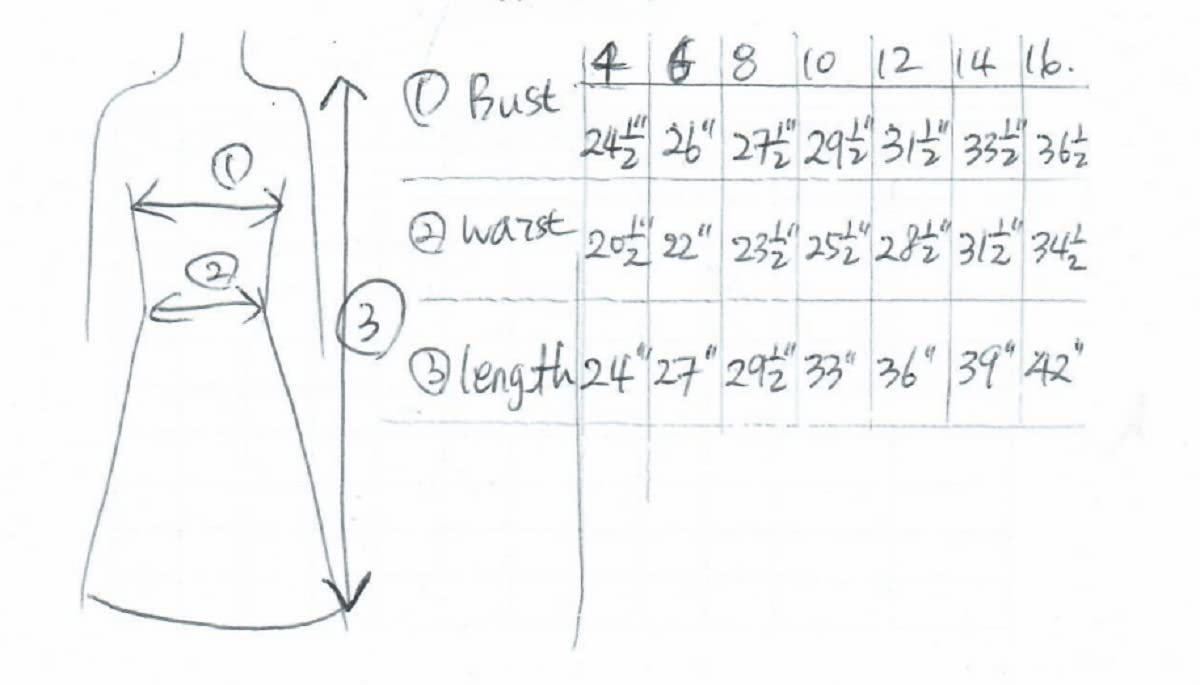 4 6 8 10 12 14 16.
① Bust
24½" 26" 27½" 29½" 31½" 33½" 36½
① ② waist 20½" 22" 23½" 25½" 28½" 31½" 34½
②
③
③ length 24" 27" 29½" 33" 36" 39" 42"